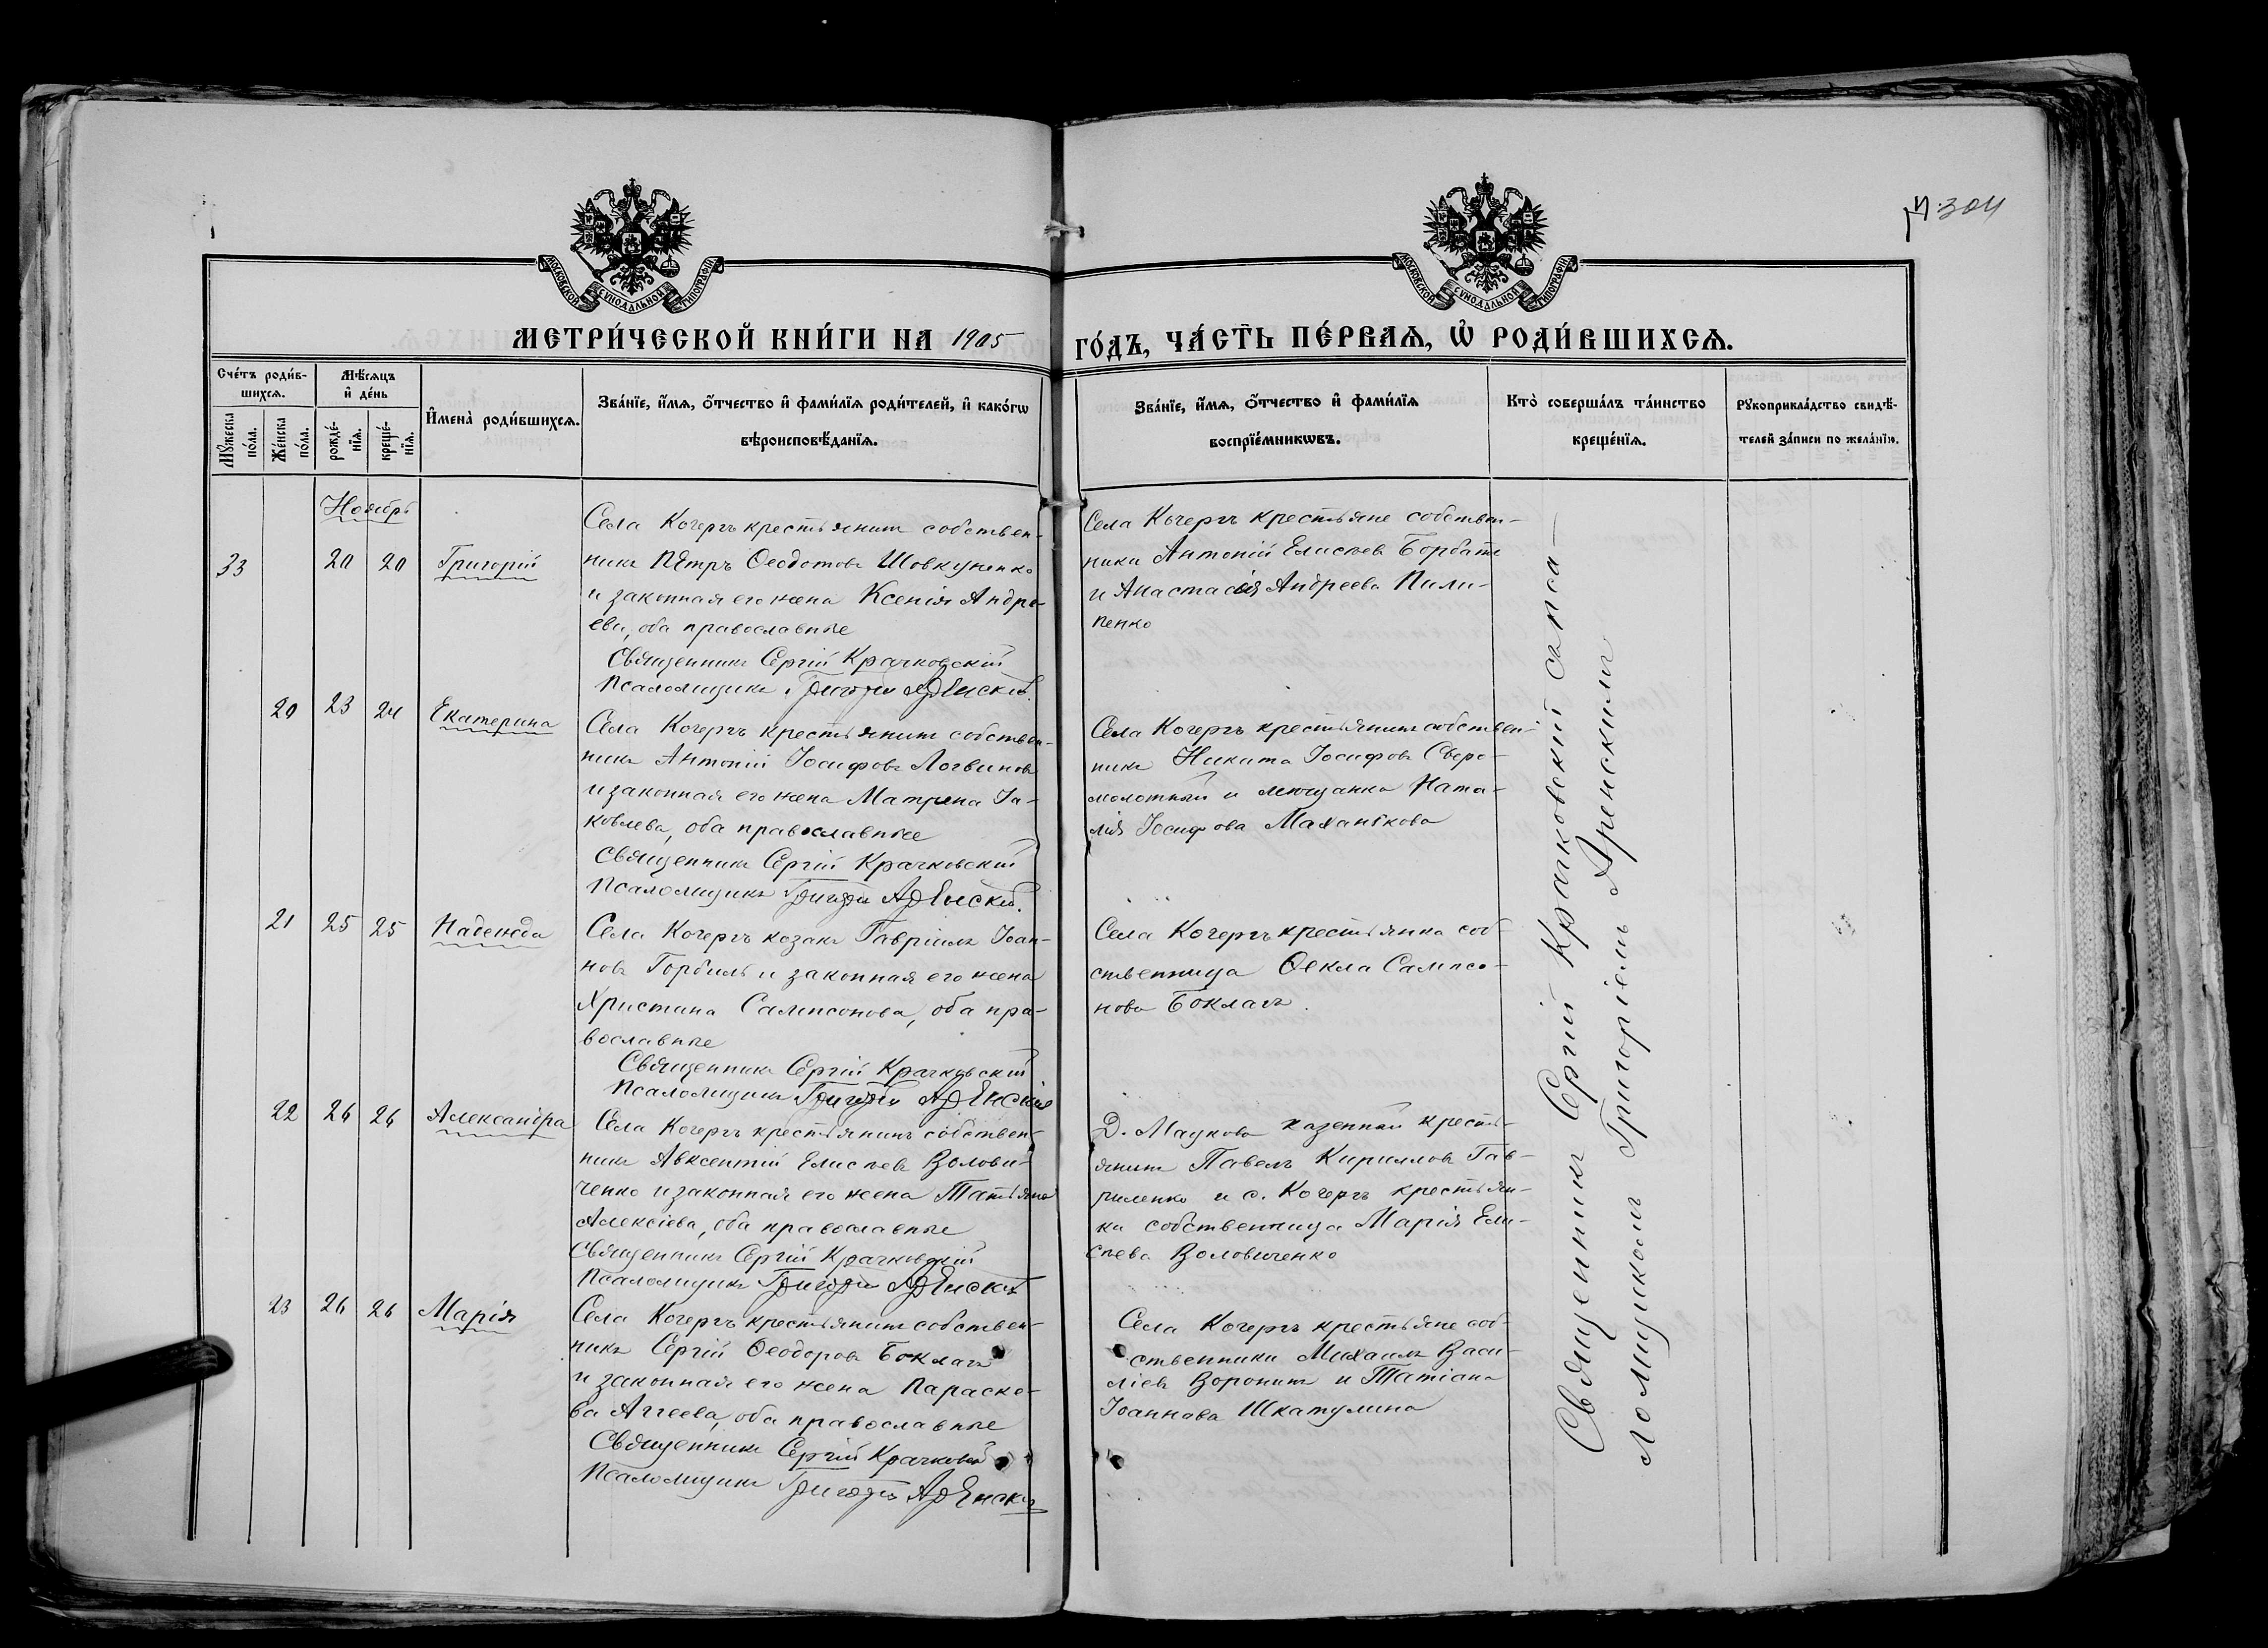 304
МОСКОВСКОЙ СѴНОДАЛЬНОЙ ТИПОГРАФІИ
МОСКОВСКОЙ СѴНОДАЛЬНОЙ ТИПОГРАФІИ
МЕТРИ́ЧЕСКОЙ КНИ́ГИ НА 1905
ГО́ДЪ, ЧА́СТЬ ПЕ́РВАѦ, Ѡ҆ РОДИ́ВШИХСѦ.
Сче́тъ роди́в-
шихсѧ.
Мꙋжеска по́ла.
Же́нска по́ла.
Мѣ́сѧцъ
и҆ де́нь
рожде́-
нїѧ.
креще́-
нїѧ.
И҆мена̀ роди́вшихсѧ.
Зва́нїе, и҆́мѧ, ѻ҆́тчество и҆ фами́лїѧ роди́телей, и҆ како́гѡ
вѣроисповѣ́данїѧ.
Зва́нїе, и҆́мѧ, ѻ҆́тчество и҆ фами́лїѧ
воспрїе́мникѡвъ.
Кто̀ соверша́лъ та́инство
креще́нїѧ.
Рꙋкоприкла́дство свидѣ́-
телей за́писи по жела́нїю.
Ноябрь
33 20 20 Григорій
Села Кочергъ крестьянинъ собствен-
никъ Пѣтръ Ѳеодотовъ Шовкуненко
и законная его жена Ксенія Андре-
ева, оба православные
Священникъ Сергій Крачковскій
Псаломщикъ Григорій Аренскій
Села Кочергъ крестьяне собствен-
ники Антоній Елисѣевъ Борбатъ
и Анастасія Андреева Пили-
пенко
20 23 24 Екатерина
Села Кочергъ крестьянинъ собствен-
никъ Антоній Іосифовъ Логвиновъ
и законная его жена Матрена Іа-
ковлева, оба православные
Священникъ Сергій Крачковскій
Псаломщикъ Григорій Аренскій.
Села Кочергъ крестьянинъ собствен-
никъ Никита Іосифовъ Сыро-
молотный и мѣщанка Ната-
лія Іосифова Маханькова
21 25 25 Надежда
Села Кочергъ козакъ Гавріилъ Іоан-
новъ Горбиль и законная его жена
Христина Сампсонова, оба пра-
вославные
Священникъ Сергій Крачковскій
Псаломщикъ Григорій Аренскій
Села Кочергъ крестьянка соб-
ственница Ѳекла Сампсо-
нова Боклагъ.
22 26 26 Александра
Села Кочергъ крестьянинъ собствен-
никъ Авксентій Елисѣевъ Волови-
ченко и законная его жена Татьяна
Алексіева, оба православные
Священникъ Сергій Крачковскій
Псаломщикъ Григорій Аренскій
Д. Мацкова казенный кресть-
янинъ Павелъ Кирилловъ Гав-
риленко и с. Кочергъ крестьян-
ка собственница Марія Ели-
сѣева Воловиченко
23 26 26 Марія
Села Кочергъ крестьянинъ собствен-
никъ Сергій Ѳеодоровъ Боклагъ
и законная его жена Параске-
ва Аггеева, оба православные
Священникъ Сергій Крачковскій
Псаломщикъ Григорій Аренскій
Села Кочергъ крестьяне соб-
ственники Михаилъ Васи-
ліевъ Воронинъ и Татіана
Іоаннова Шкатулина
Священникъ Сергій Крачковскій съ пса-
ломщикомъ Григоріемъ Аренскимъ